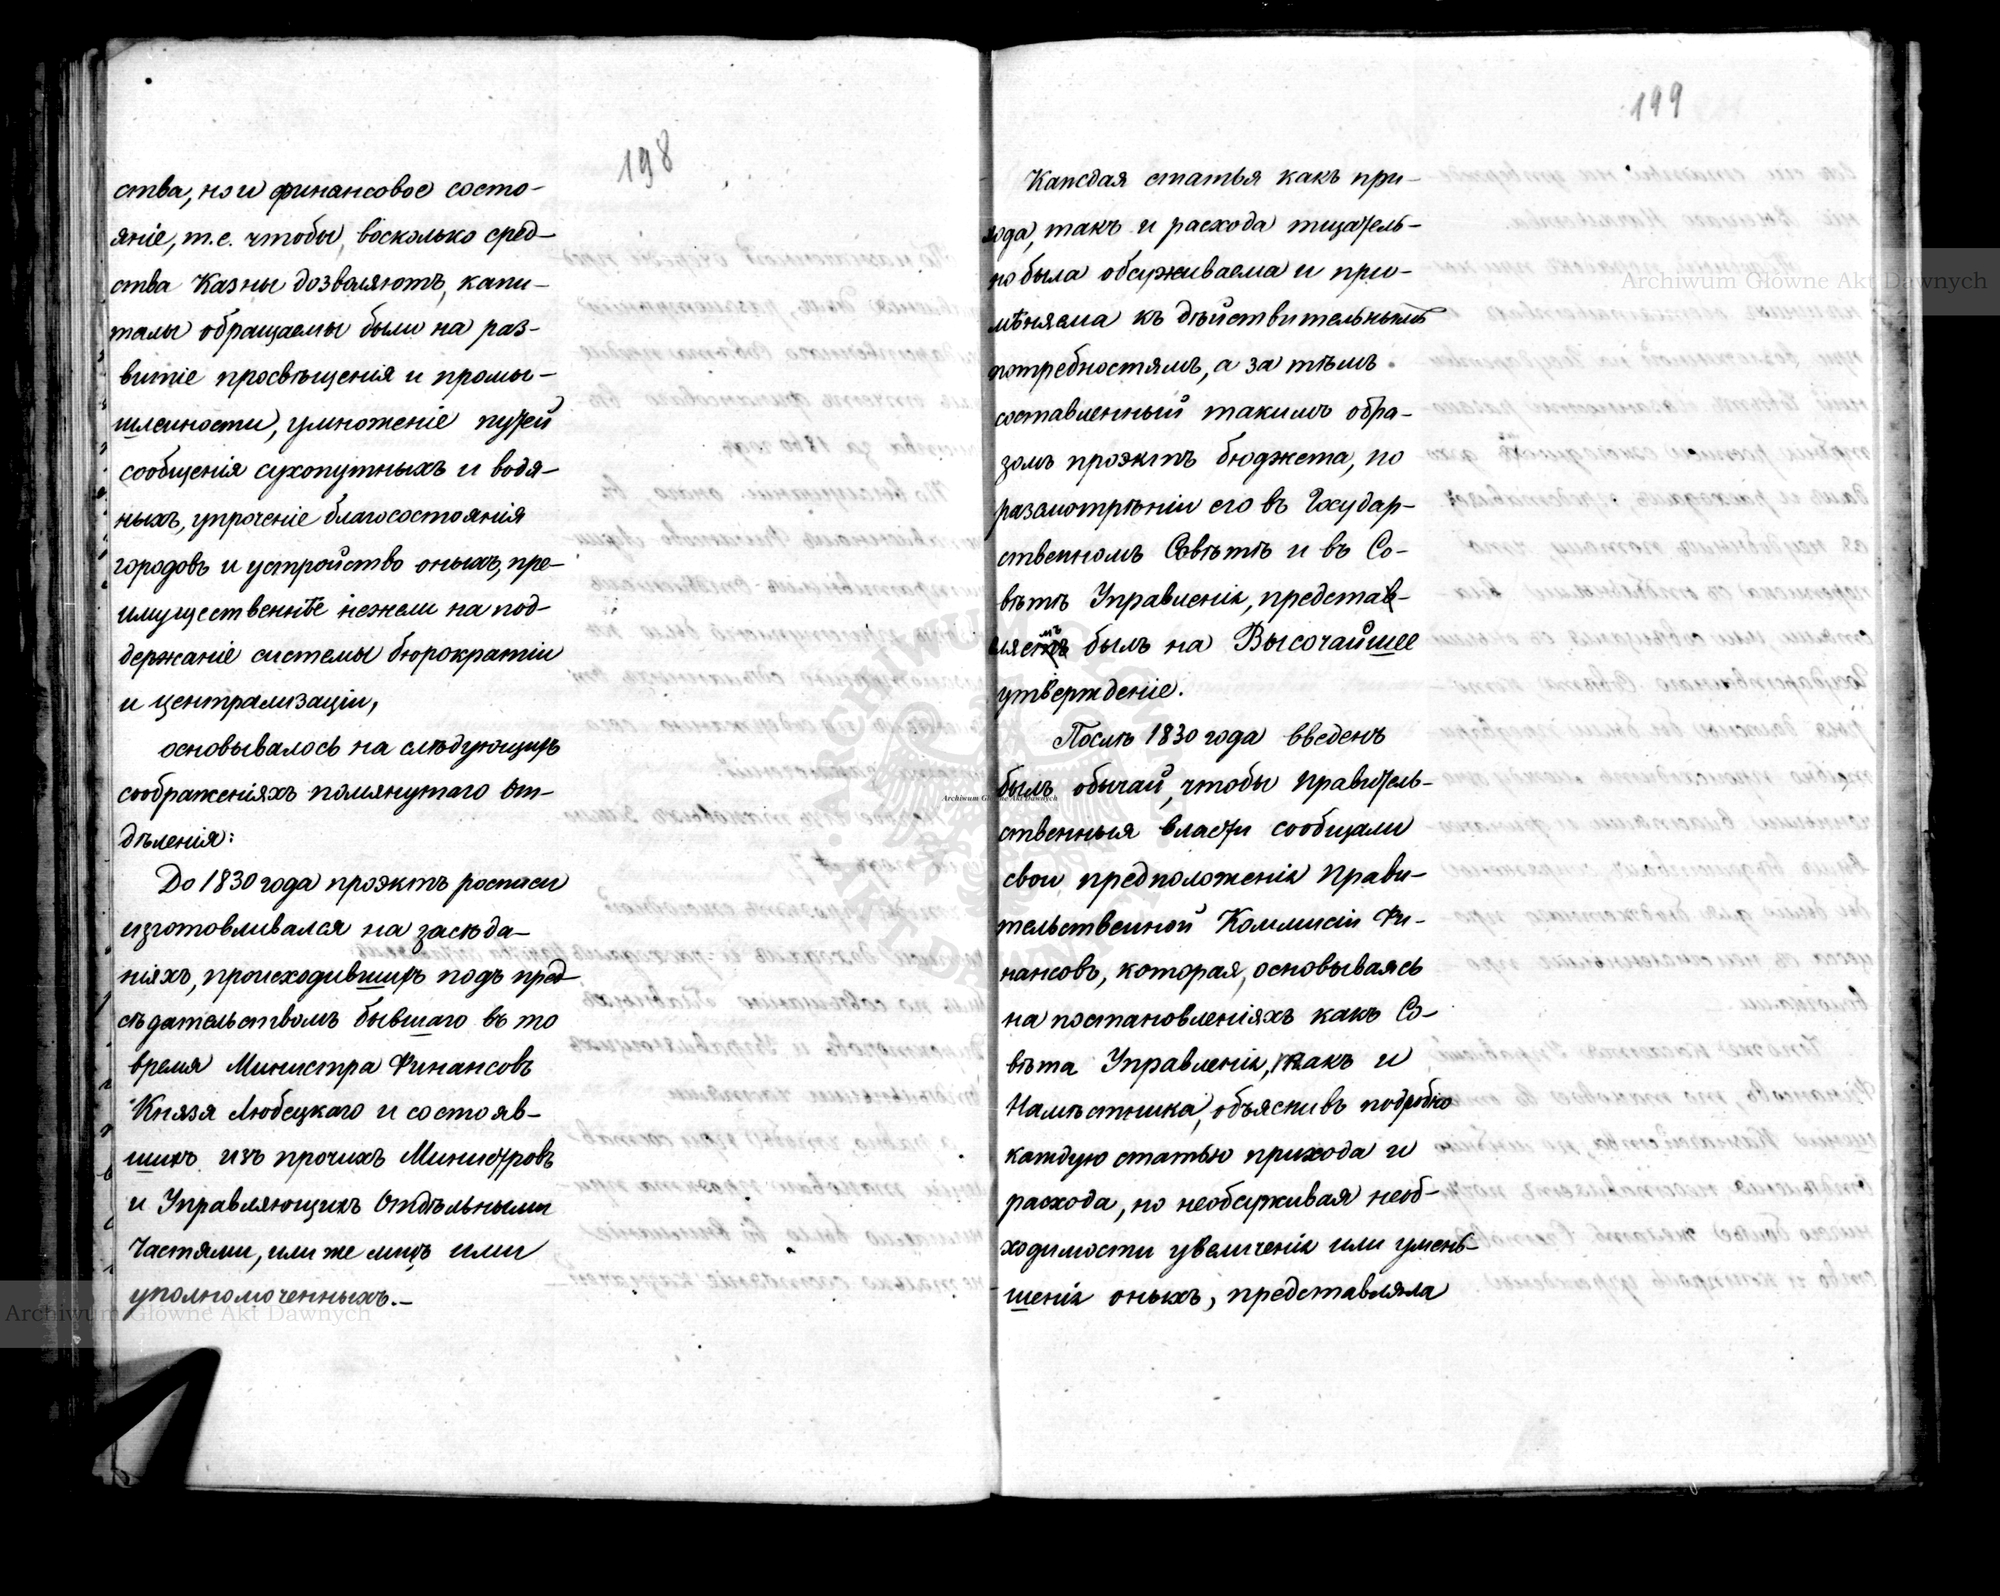 198
ства, но и финансовое состо-
яніе, т.е. чтобы, восколько сред-
ства Казны дозволяютъ, капи-
талы обращаемы были на раз-
витіе просвѣщенія и промы-
шленности, умноженіе путей
сообщенія сухопутныхъ и водя-
ныхъ, упроченіе благосостоянія
городовъ и устройство оныхъ, пре-
имущественнѣе нежели на под-
держаніе системы бюрократіи
и централизаціи,
основывалось на слѣдующихъ
соображеніяхъ помянутаго От-
дѣленія:
До 1830 года проэктъ росписи
изготовливался на засѣда-
ніяхъ, происходившихъ подъ пред-
сѣдательствомъ бывшаго въ то
время Министра Финансовъ
Князя Любецкаго и состояв-
шихъ изъ прочихъ Министровъ
и Управляющихъ Отдѣльными
Частями, или же лицъ ими
уполномоченныхъ.-
199
Каждая статья какъ при-
хода, такъ и расхода тщатель-
но была обсуживаема и при-
мѣняема къ дѣйствительнымъ
потребностямъ, а за тѣмъ
составленный такимъ обра-
зомъ проэктъ бюджета, по
разсмотрѣніи его въ Государ-
ственномъ Совѣтѣ и въ Со-
вѣтѣ Управленія, представ-
ляемъ былъ на Высочайшее
утвержденіе.
Послѣ 1830 года введенъ
былъ обычай, чтобы правитель-
ственныя власти сообщали
свои предположенія Прави-
тельственной Коммисіи Фи-
нансовъ, которая, основываясь
на постановленіяхъ какъ Со-
вѣта Управленія, такъ и
Намѣстника, объяснивъ подробно
каждую статью прихода и
расхода, но необсуживая необ-
ходимости увеличенія или умень-
шенія оныхъ, представляла
Archiwum Główne Akt Dawnych
Archiwum Główne Akt Dawnych
Archiwum Główne Akt Dawnych